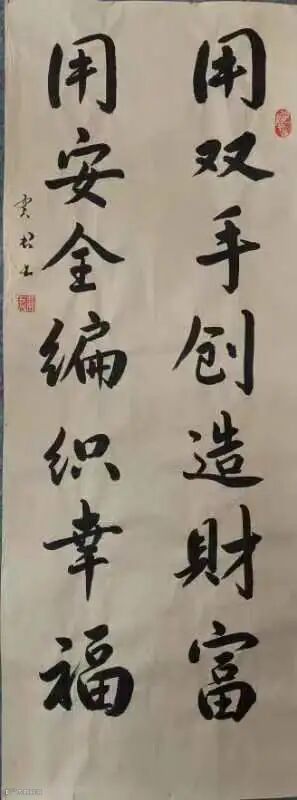 用双手创造财富
用安全编织幸福